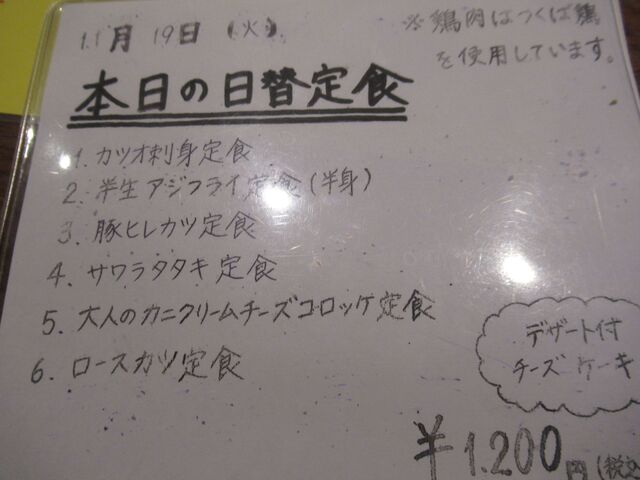 11月19日(火)
※鶏肉はつくば鶏
を使用しています。
本日の日替定食
1. カツオ刺身定食
2. 半生アジフライ定食(半身)
3. 豚ヒレカツ定食
4. サワラタタキ定食
5. 大人のカニクリームチーズコロッケ定食
6. ロースカツ定食
デザート付
チーズケーキ
¥1.200円(税込